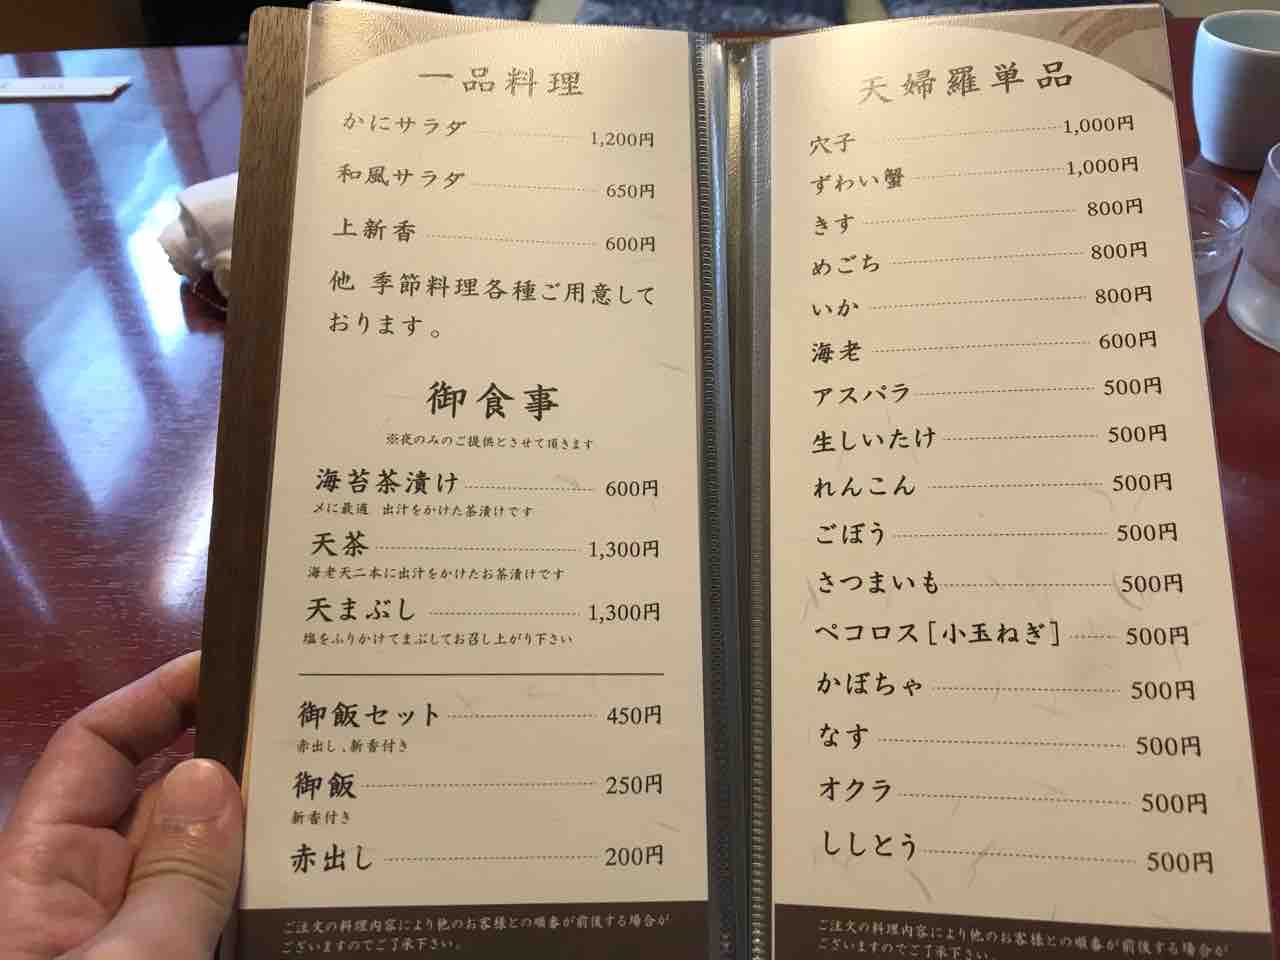 一品料理
かにサラダ 1,200円
和風サラダ 650円
上新香 600円
他 季節料理各種ご用意して
おります。
御食事
※夜のみのご提供とさせて頂きます
海苔茶漬け 600円
〆に最適 出汁をかけた茶漬けです
天茶 1,300円
海老天二本に出汁をかけたお茶漬けです
天まぶし 1,300円
塩をふりかけてまぶしてお召し上がり下さい
御飯セット 450円
赤出し、新香付き
御飯 250円
新香付き
赤出し 200円
ご注文の料理内容により他のお客様との順番が前後する場合が
ございますのでご了承下さい。
天婦羅単品
穴子 1,000円
ずわい蟹 1,000円
きす 800円
めごち 800円
いか 800円
海老 600円
アスパラ 500円
生しいたけ 500円
れんこん 500円
ごぼう 500円
さつまいも 500円
ペコロス[小玉ねぎ] 500円
かぼちゃ 500円
なす 500円
オクラ 500円
ししとう 500円
ご注文の料理内容により他のお客様との順番が前後する場合が
ございますのでご了承下さい。